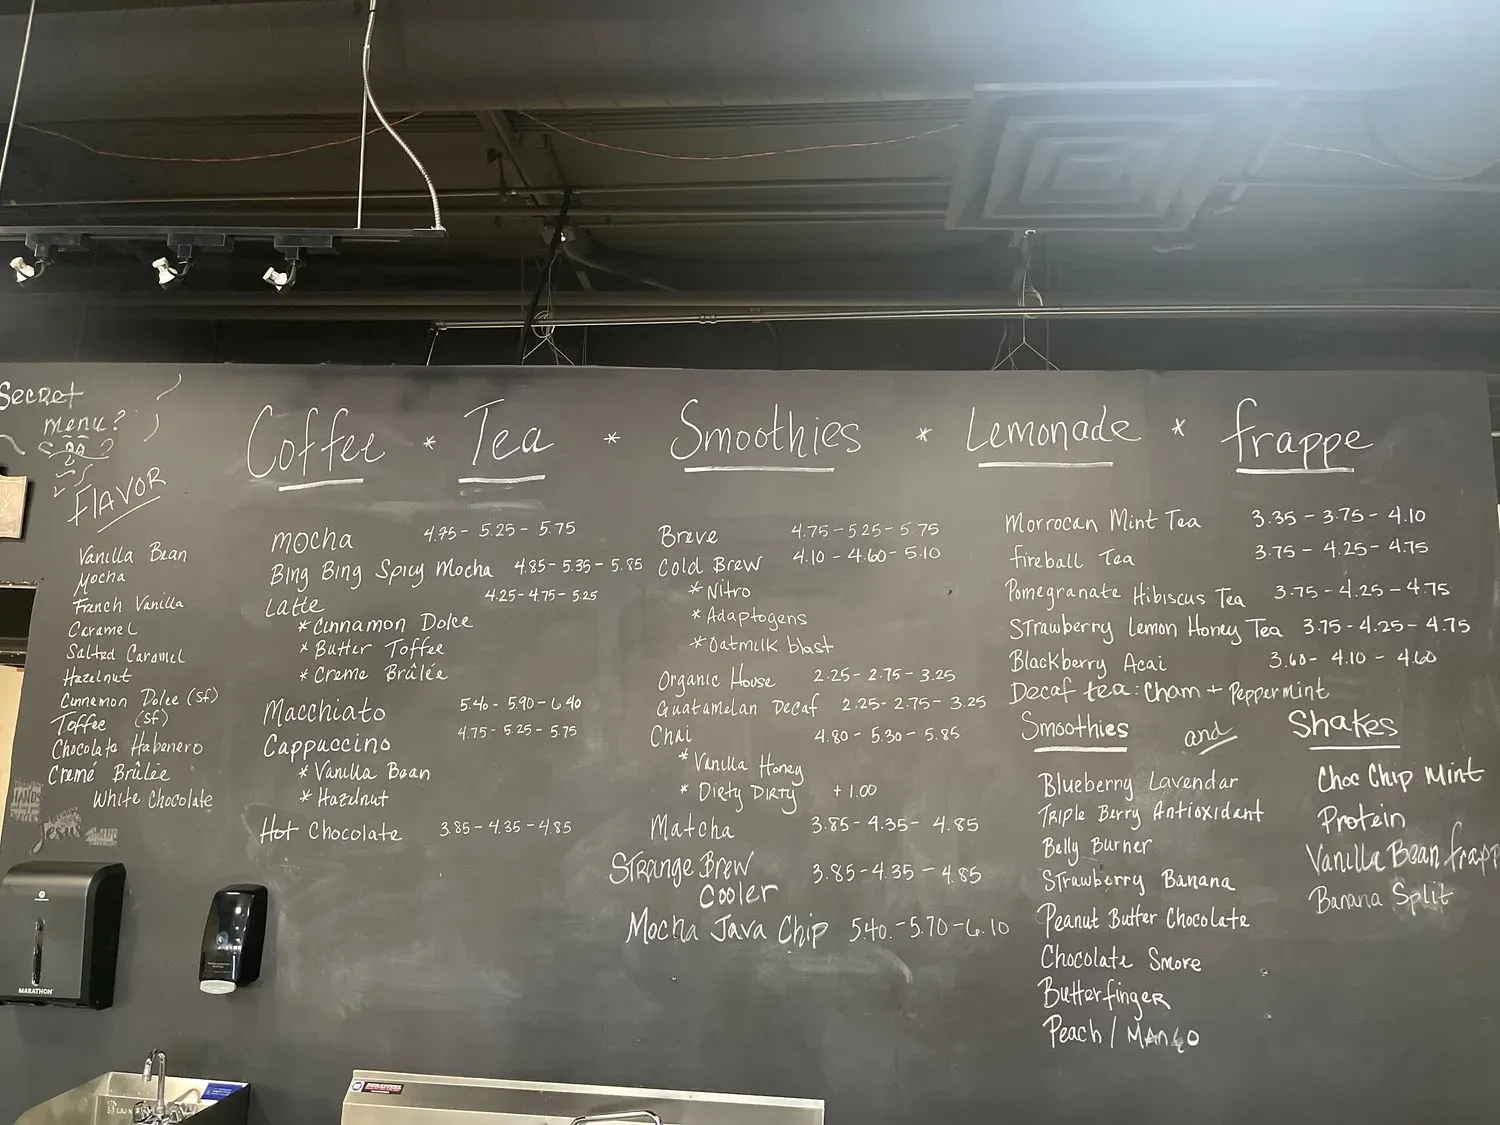 Secret
menu?
FlAVOR
Vanilla Bean
Mocha
French Vanilla
Caramel
Salted Caramel
Hazelnut
Cinnamon Dolce (sf)
Toffee (sf)
Chocolate Habenero
Cremé Brûlée
White Chocolate
HANDS
Jesus
MARATHON
Coffee * Tea * Smoothies * Lemonade * frappe
mocha 4.75 - 5.25 - 5.75
Bing Bing Spicy Mocha 4.85 - 5.35 - 5.85
Latte 4.25 - 4.75 - 5.25
* Cinnamon Dolce
* Butter Toffee
* Creme Brûlée
Macchiato 5.40 - 5.90 - 6.40
Cappuccino 4.75 - 5.25 - 5.75
* Vanilla Bean
* Hazelnut
Hot Chocolate 3.85 - 4.35 - 4.85
Breve 4.75 - 5.25 - 5.75
Cold Brew 4.10 - 4.60 - 5.10
* Nitro
* Adaptogens
* Oatmilk blast
Organic House 2.25 - 2.75 - 3.25
Guatamelan Decaf 2.25 - 2.75 - 3.25
Chai 4.80 - 5.30 - 5.85
* Vanilla Honey
* Dirty Dirty + 1.00
Matcha 3.85 - 4.35 - 4.85
Strange Brew 3.85 - 4.35 - 4.85
Cooler
Mocha Java Chip 5.40. - 5.70 - 6.10
Morrocan Mint Tea 3.35 - 3.75 - 4.10
fireball Tea 3.75 - 4.25 - 4.75
Pomegranate Hibiscus Tea 3.75 - 4.25 - 4.75
Strawberry Lemon Honey Tea 3.75 - 4.25 - 4.75
Blackberry Acai 3.60 - 4.10 - 4.60
Decaf tea: Cham + Peppermint
Smoothies and Shakes
Blueberry Lavendar
Triple Berry Antioxidant
Belly Burner
Strawberry Banana
Peanut Butter Chocolate
Chocolate Smore
Butterfinger
Peach / Mango
Choc Chip Mint
Protein
Vanilla Bean frapp
Banana Split